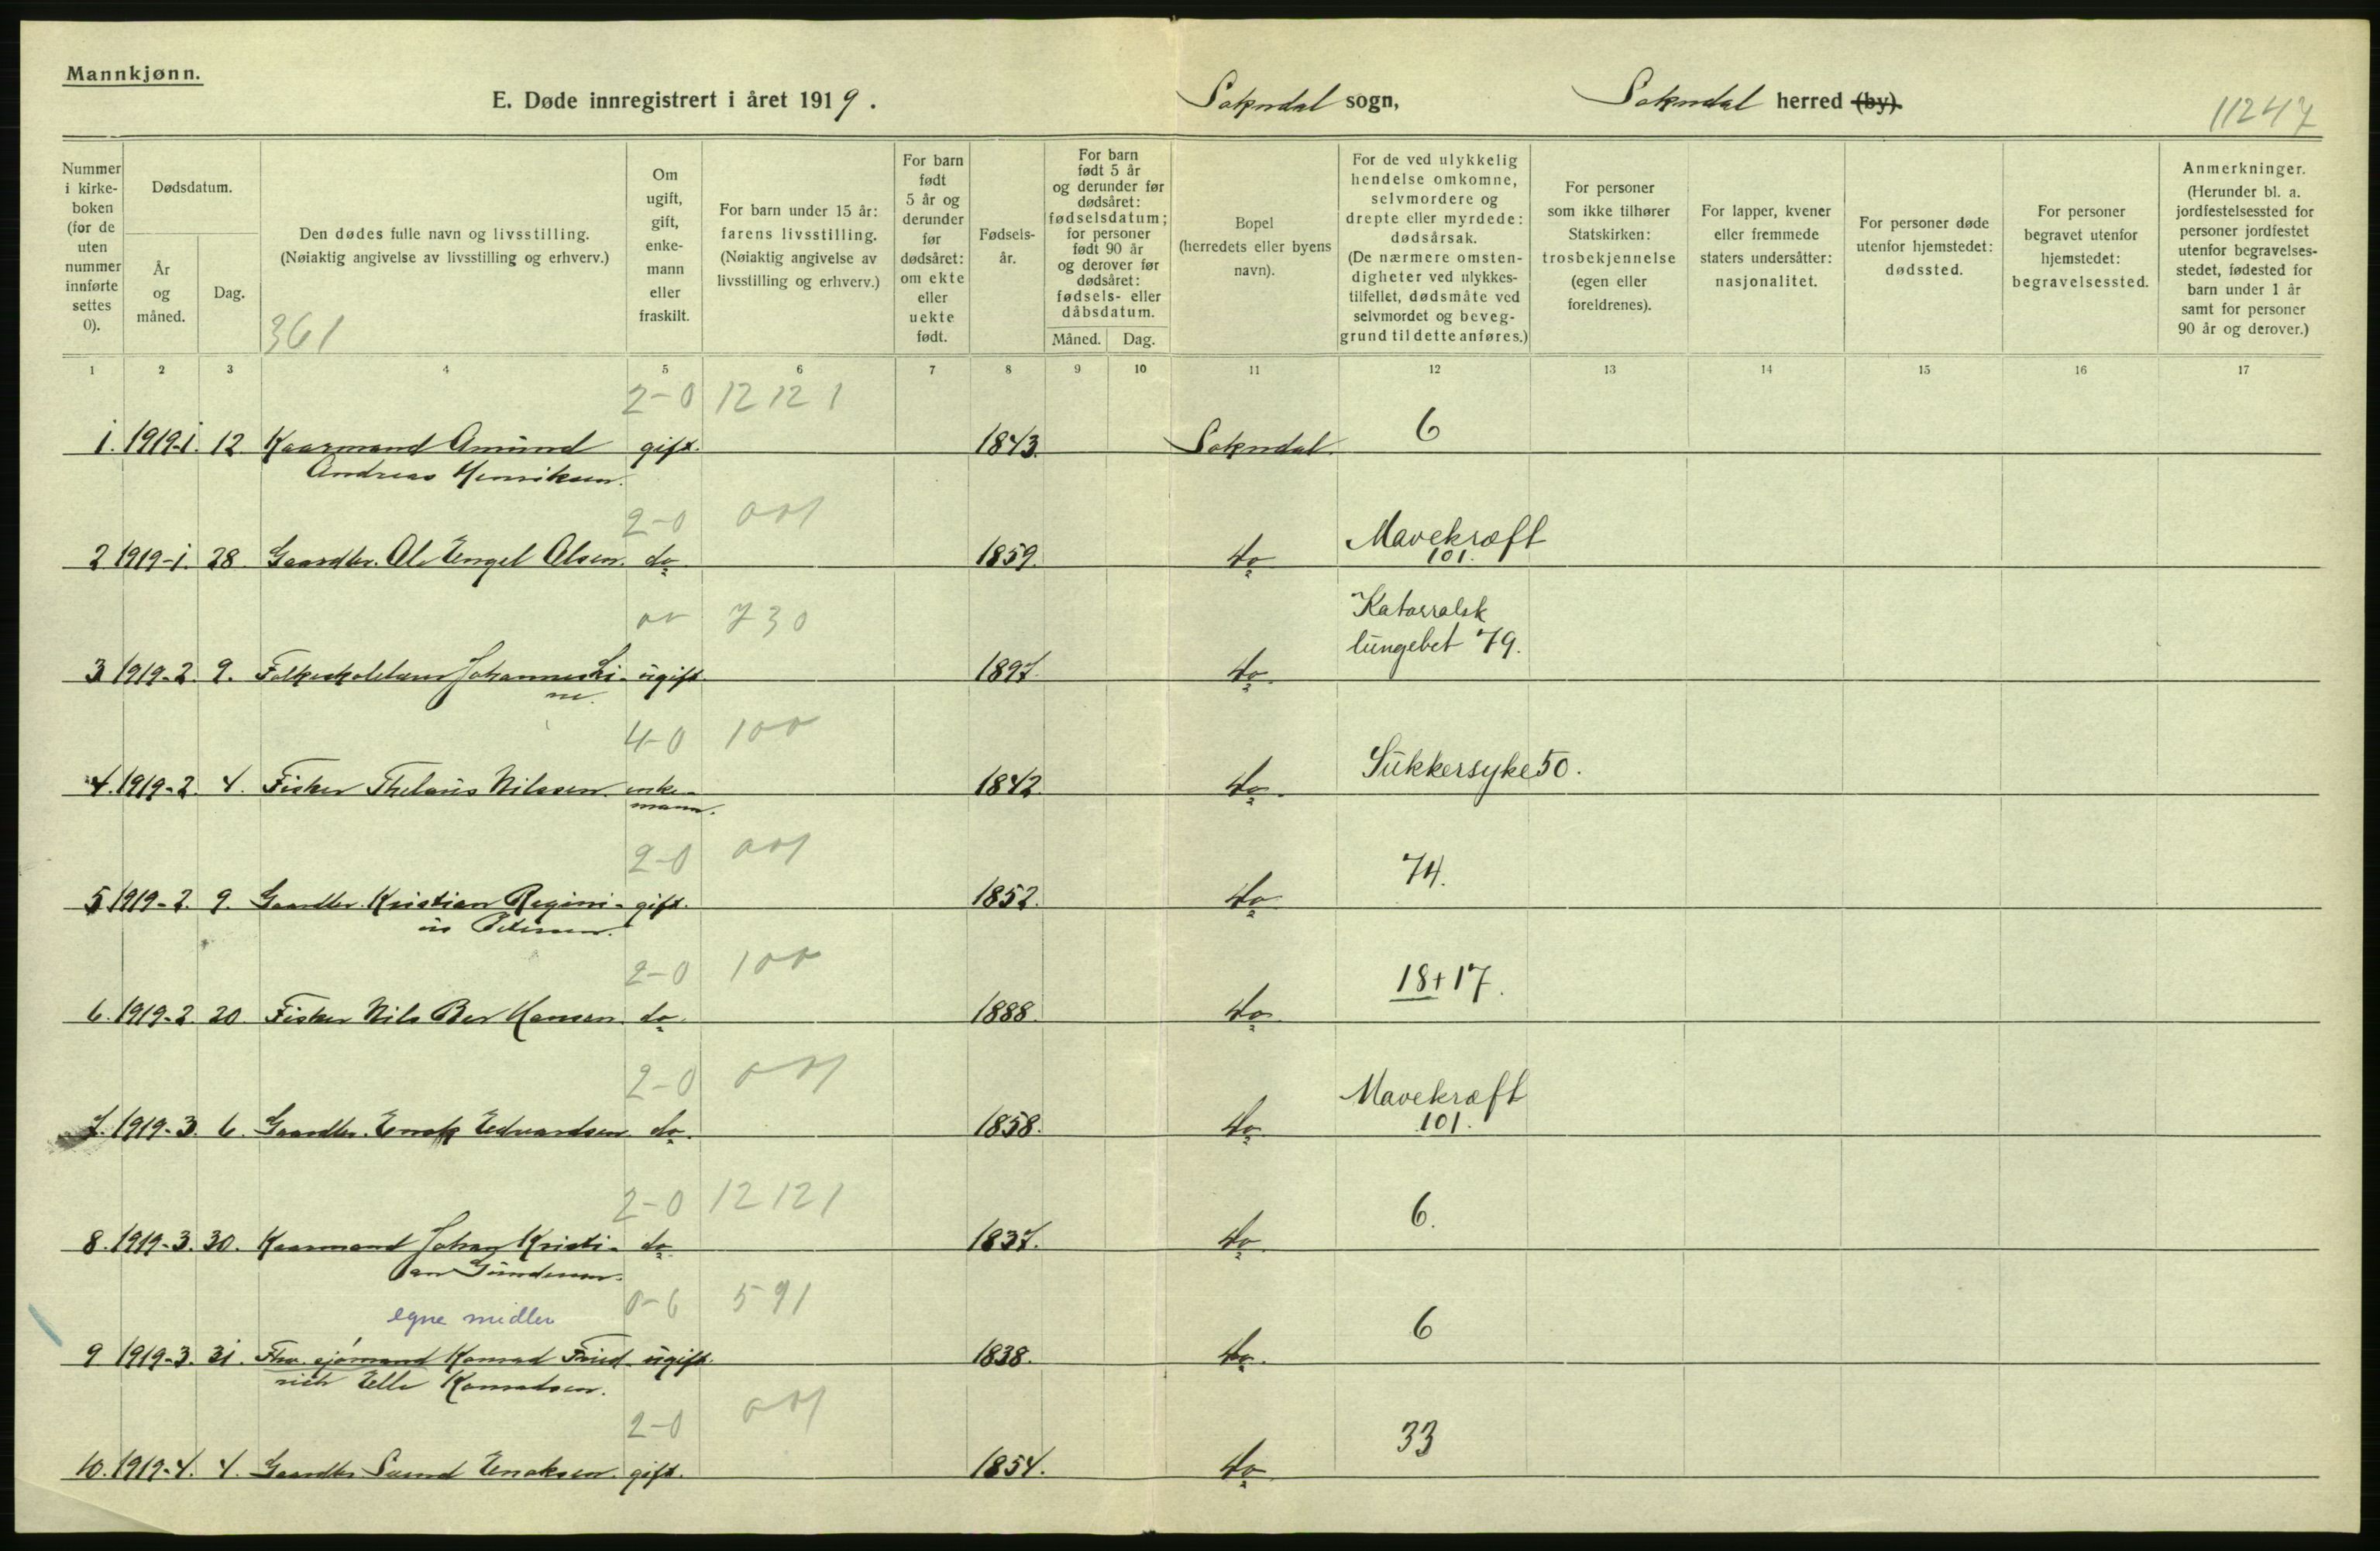 Mannkjønn.
E. Døde innregistrert i året 1919.
Sokndal sogn,
Sokndal herred (by).
11247
Nummer i kirkeboken (for de uten nummer innførte settes 0).
Dødsdatum.
År og måned.
Dag.
Den dødes fulle navn og livsstilling.
(Nøiaktig angivelse av livsstilling og erhverv.)
361
Om ugift, gift, enkemann eller fraskilt.
For barn under 15 år: farens livsstilling.
(Nøiaktig angivelse av livsstilling og erhverv.)
For barn født 5 år og derunder før dødsåret: om ekte eller uekte født.
Fødselsår.
For barn født 5 år og derunder før dødsåret: fødselsdatum; for personer født 90 år og derover før dødsåret: fødsels- eller dåbsdatum.
Måned. Dag.
Bopel (herredets eller byens navn).
For de ved ulykkelig hendelse omkomne, selvmordere og drepte eller myrdede: dødsårsak.
(De nærmere omstendigheter ved ulykkestilfellet, dødsmåte ved selvmordet og beveggrund til dette anføres.)
For personer som ikke tilhører Statskirken: trosbekjennelse (egen eller foreldrenes).
For lapper, kvener eller fremmede staters undersåtter: nasjonalitet.
For personer døde utenfor hjemstedet: dødssted.
For personer begravet utenfor hjemstedet: begravelsessted.
Anmerkninger.
(Herunder bl. a. jordfestelsessted for personer jordfestet utenfor begravelsesstedet, fødested for barn under 1 år samt for personer 90 år og derover.)
1 2 3 4 5 6 7 8 9 10 11 12 13 14 15 16 17
2-0 12 12 1
1. 1919-1. 12. Kaarmand Amund gift. 1843. Sokndal. 6
Andreas Henriksen.
2-0 001
2 1919-1. 28. Gaardbr. Ole Engel Olsen. do 1859. do Mavekræft
101.
00 730
Katarralsk
lungebet 79.
3 1919-2. 9. Folkeskolelærer Johannes Li- ugift. 1897. do.
ne.
4-0 100
4. 1919-2. 4. Fisker Thelaus Nilssen. enke- 1842. do. Sukkersyke 50.
mann.
2-0 001
5 1919-2. 9. Gaardbr. Kristian Regini- gift. 1852. do 74.
us Petersen.
2-0 100
6. 1919-2. 20. Fisker Nils Ber Hansen. do. 1888. do 18+17.
2-0 001
7. 1919-3. 6. Gaardbr. Enok Edvardsen. do. 1858. do Mavekræft
101.
2-0 12 12 1
8. 1919-3. 30. Kaarmand Johan Kristi- do 1837. do 6.
an Gundersen.
0-6 591
egne midler
9 1919-3. 31. Fhv. sjømand Konrad Fried- ugift. 1838. do. 6
rich Elle Konradsen.
2-0 001
10. 1919-4. 4. Gaardbr Svend Enoksen. gift. 1854. do 33